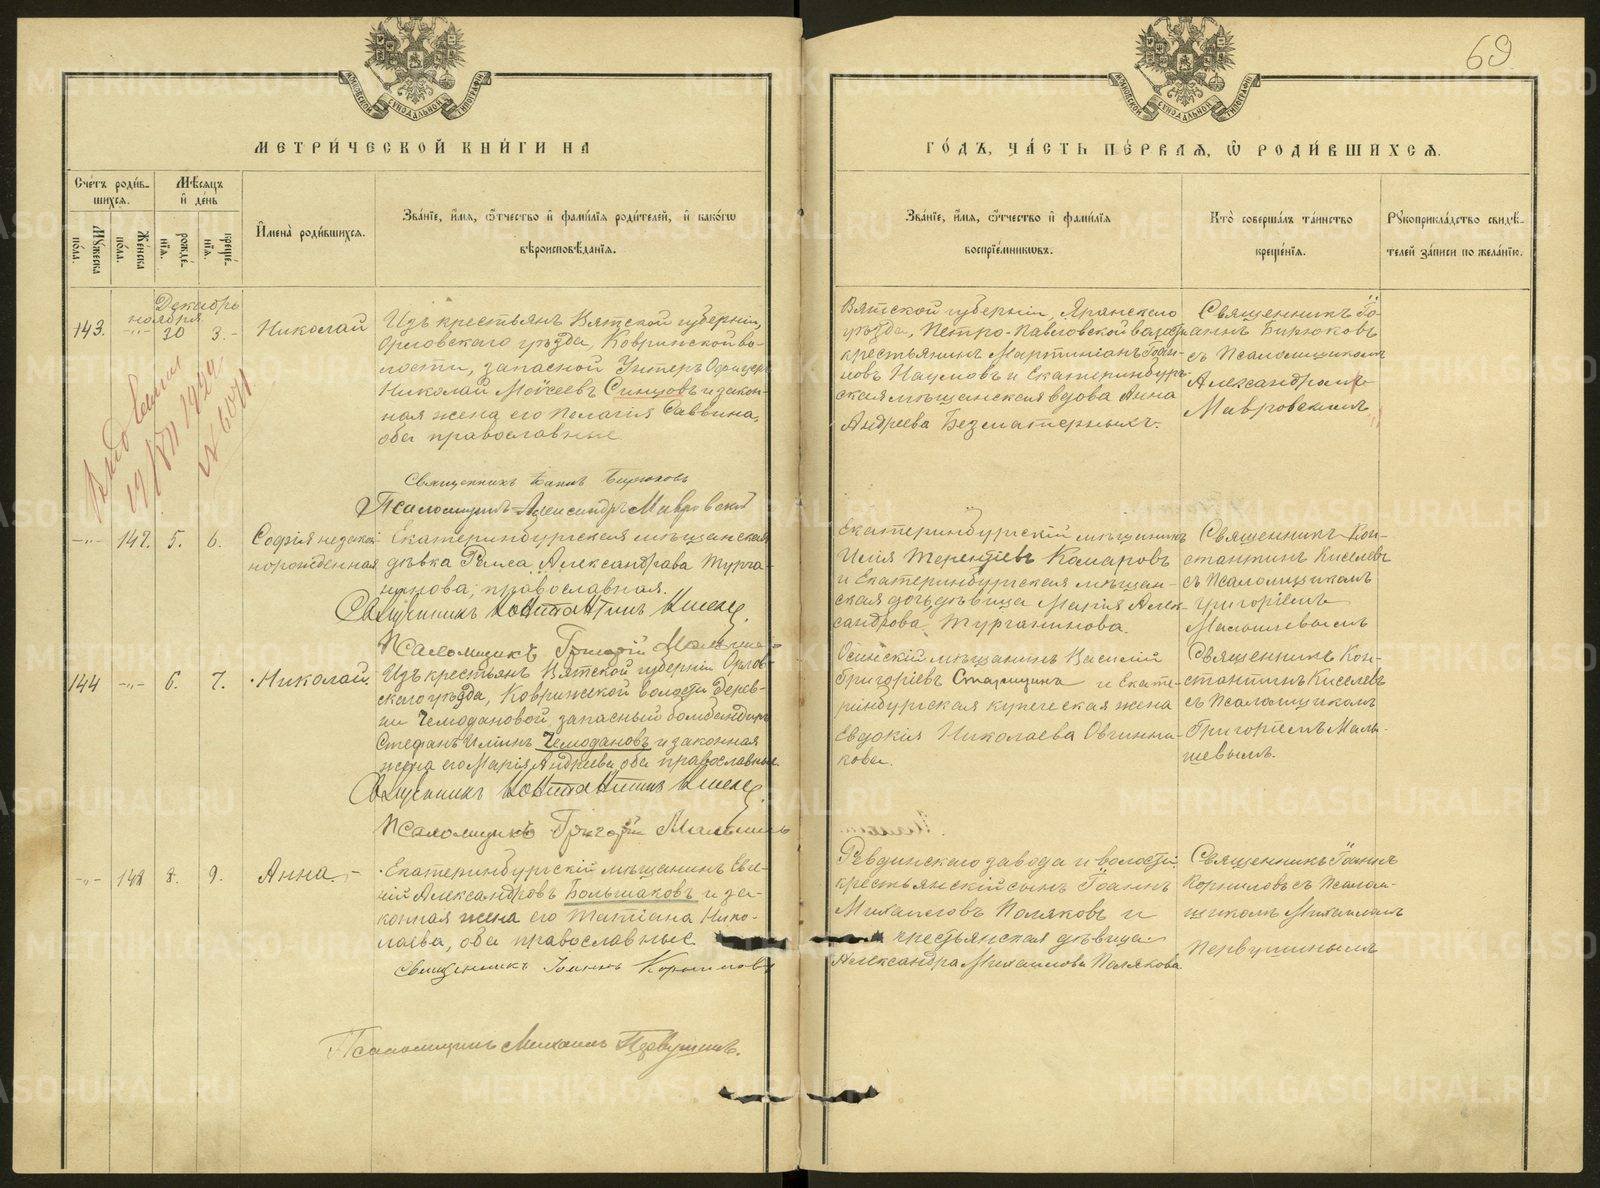 69.
МЕТРИ́ЧЕСКОЙ КНИ́ГИ НА
ГО́ДЪ, ЧА́СТЬ ПЕ́РВАЯ, Ѡ РОДИ́ВШИХСЯ.
Сче́тъ роди́в-
шихся.
Мѣ́сяцъ
и де́нь
Му́жеска по́ла.
Же́нска по́ла.
рожде́нїя.
креще́нїя.
И҆мена̀ роди́вшихся.
Зва́нїе, и҆́мя, ѻ҆́тчество и҆ фами́лїя роди́телей, и҆ како́гѡ
вѣроисповѣ́данїя.
Зва́нїе, и҆́мя, ѻ҆́тчество и҆ фами́лїя
воспрїе́мникѡвъ.
Кто̀ соверша́лъ та́инство
креще́нїя.
Рꙋкоприкла́дство свидѣ́-
телей за́писи по жела́нїю.
Декабрь
ноября
143. -„- 30 3. Николай
Изъ крестьянъ Вятской губерніи,
Орловскаго уѣзда, Ковринской во-
лости, запасной Унтеръ Офицеръ
Николай Моѵсеевъ Синцовъ и закон-
ная жена его Пелагія Саввина,
оба православные
Священникъ Іоаннъ Бирюковъ
Псаломщикъ Александръ Мавровскій
Вятской губерніи, Яранскаго
уѣзда, Петро-Павловской волости
крестьянинъ Мартиніанъ Іоан-
новъ Наумовъ и Екатеринбург-
ская мѣщанская вдова Анна
Андреева Безматерныхъ.
Священникъ Іо-
аннъ Бирюковъ
съ Псаломщикомъ
Александромъ
Мавровскимъ
19/VIII 1929
№ 6071
-„- 147. 5. 6. Софія незакон-
норожденная
Екатеринбургская мѣщанская
дѣвка Раиса Александрова Турга-
нинова, православная.
Священникъ Константинъ Киселевъ
Псаломщикъ Григорій Малышевъ
Екатеринбургскій мѣщанинъ
Илія Терентіевъ Комаровъ
и Екатеринбургская мѣщан-
ская дочь дѣвица Марія Алек-
сандрова Турганинова.
Священникъ Кон-
стантинъ Киселевъ
съ Псаломщикомъ
Григоріемъ
Малышевымъ
144 -„- 6. 7. Николай.
Изъ крестьянъ Вятской губерніи Орлов-
скаго уѣзда, Коврижской волости Дерев-
ни Чемодановой, запасный бомбандиръ
Стефанъ Илиинъ Чемодановъ и законная
жена его Марія Андреева оба православные
Священникъ Константинъ Киселевъ
Псаломщикъ Григорій Малышевъ
Осинскій мѣщанинъ Василій
Григоріевъ Старицинъ и Екате-
ринбургская купеческая жена
Евдокія Николаева Овчинни-
кова.
Священникъ Кон-
стантинъ Киселевъ
съ Псаломщикомъ
Григоріемъ Малы-
шевымъ.
-„- 148 8. 9. Анна.
Екатеринбургскій мѣщанинъ Евге-
ній Александровъ Большаковъ и за-
конная жена его Татіана Нико-
лаева, оба православные
Священникъ Іоаннъ Корниловъ
Псаломщикъ Михаилъ Первушинъ.
Ревдинскаго завода и волости
крестьянскій сынъ Іоаннъ
Михаиловъ Поляковъ и
крестьянская дѣвица
Александра Михаилова Полякова.
Священникъ Іоаннъ
Корниловъ съ Псалом-
щикомъ Михаиломъ
Первушинымъ
METRIKI.GASO-URAL.RU